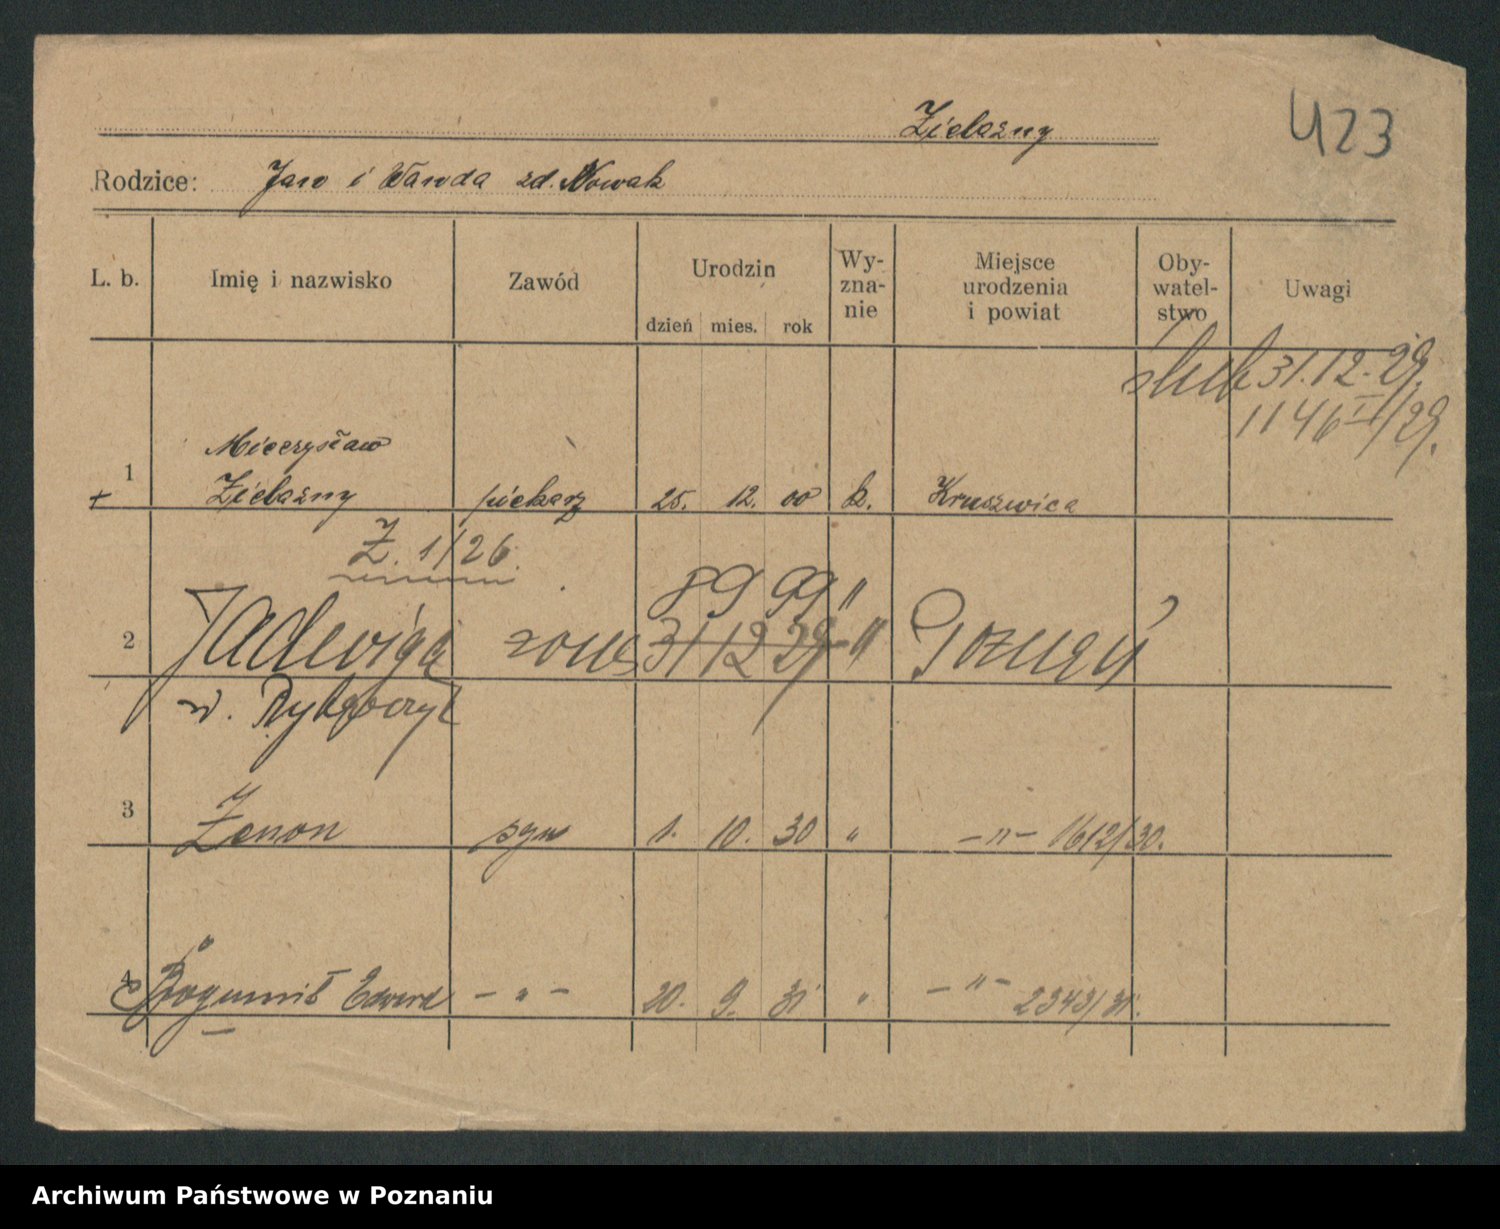 Zielazny
423
Rodzice: Jan i Wanda zd. Nowak
L. b. Imię i nazwisko Zawód Urodzin dzień mies. rok Wy-zna-nie Miejsce urodzenia i powiat Oby-watel-stwo Uwagi
ślub 31.12.29.
1146 II/29.
Mieczysław
1 Zielazny piekarz 25. 12. 00 k. Kruszwica
+
Z. 1/26.
8 9 99 "
2 Jadwiga żona 31 12 29 " Poznań
w. Rybarczyk
3 Zenon syn 1. 10. 30 " -"- 1612/30.
4 Bogumił Edward -"- 20. 9. 31 " -"- 2343/31.
Archiwum Państwowe w Poznaniu